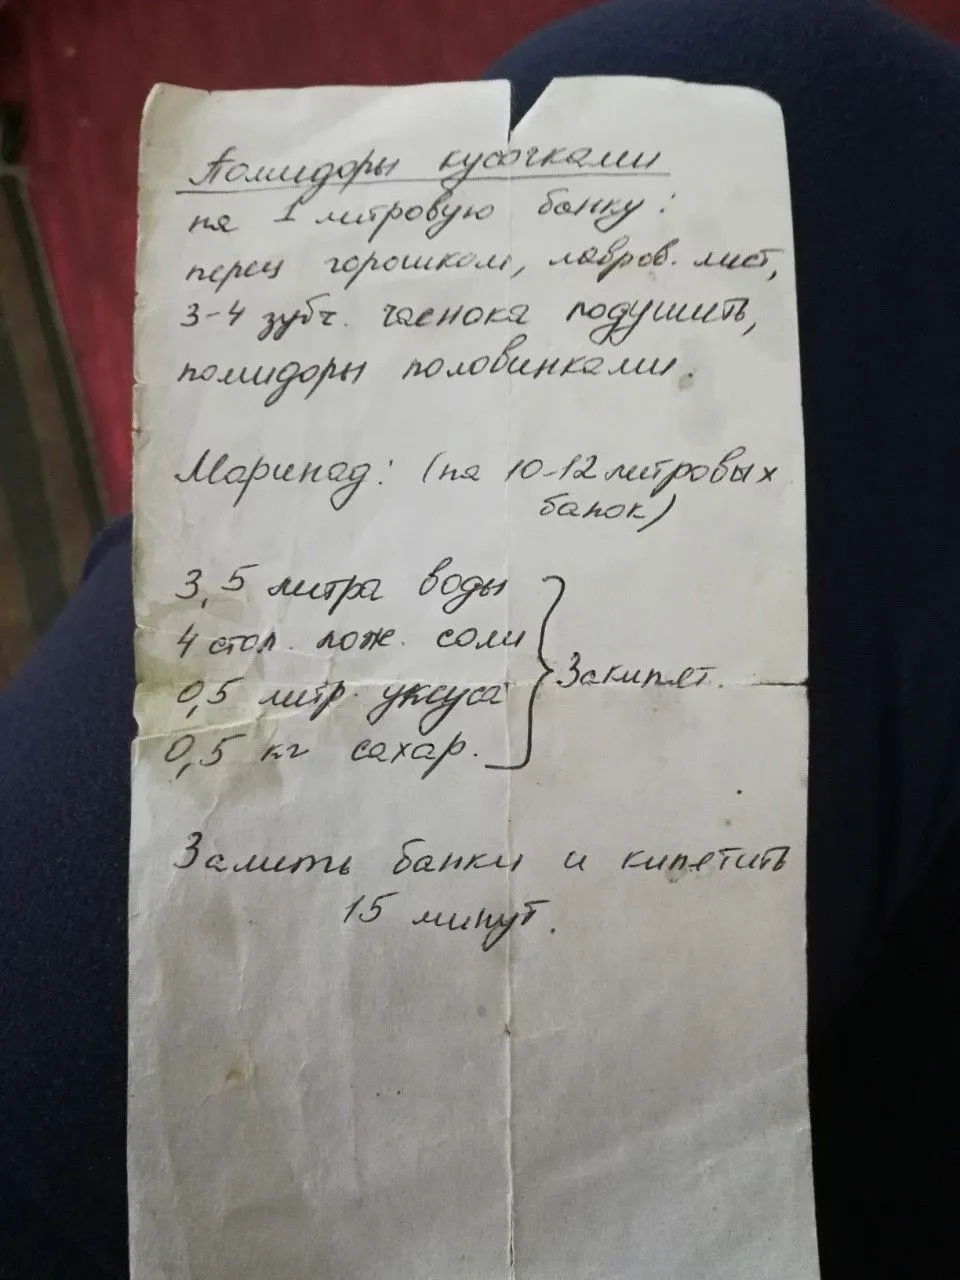 Помидоры кусочками
на 1 литровую банку:
перец горошком, лавров. лист,
3-4 зубч. чаенока подушить,
помидоры половинками.
Маринад: (на 10-12 литровых
банок)
3,5 литра воды
4 стол. лож. соли
0,5 литр. уксуса
0,5 кг сахар.
Закипят.
Залить банки и кипятить
15 минут.